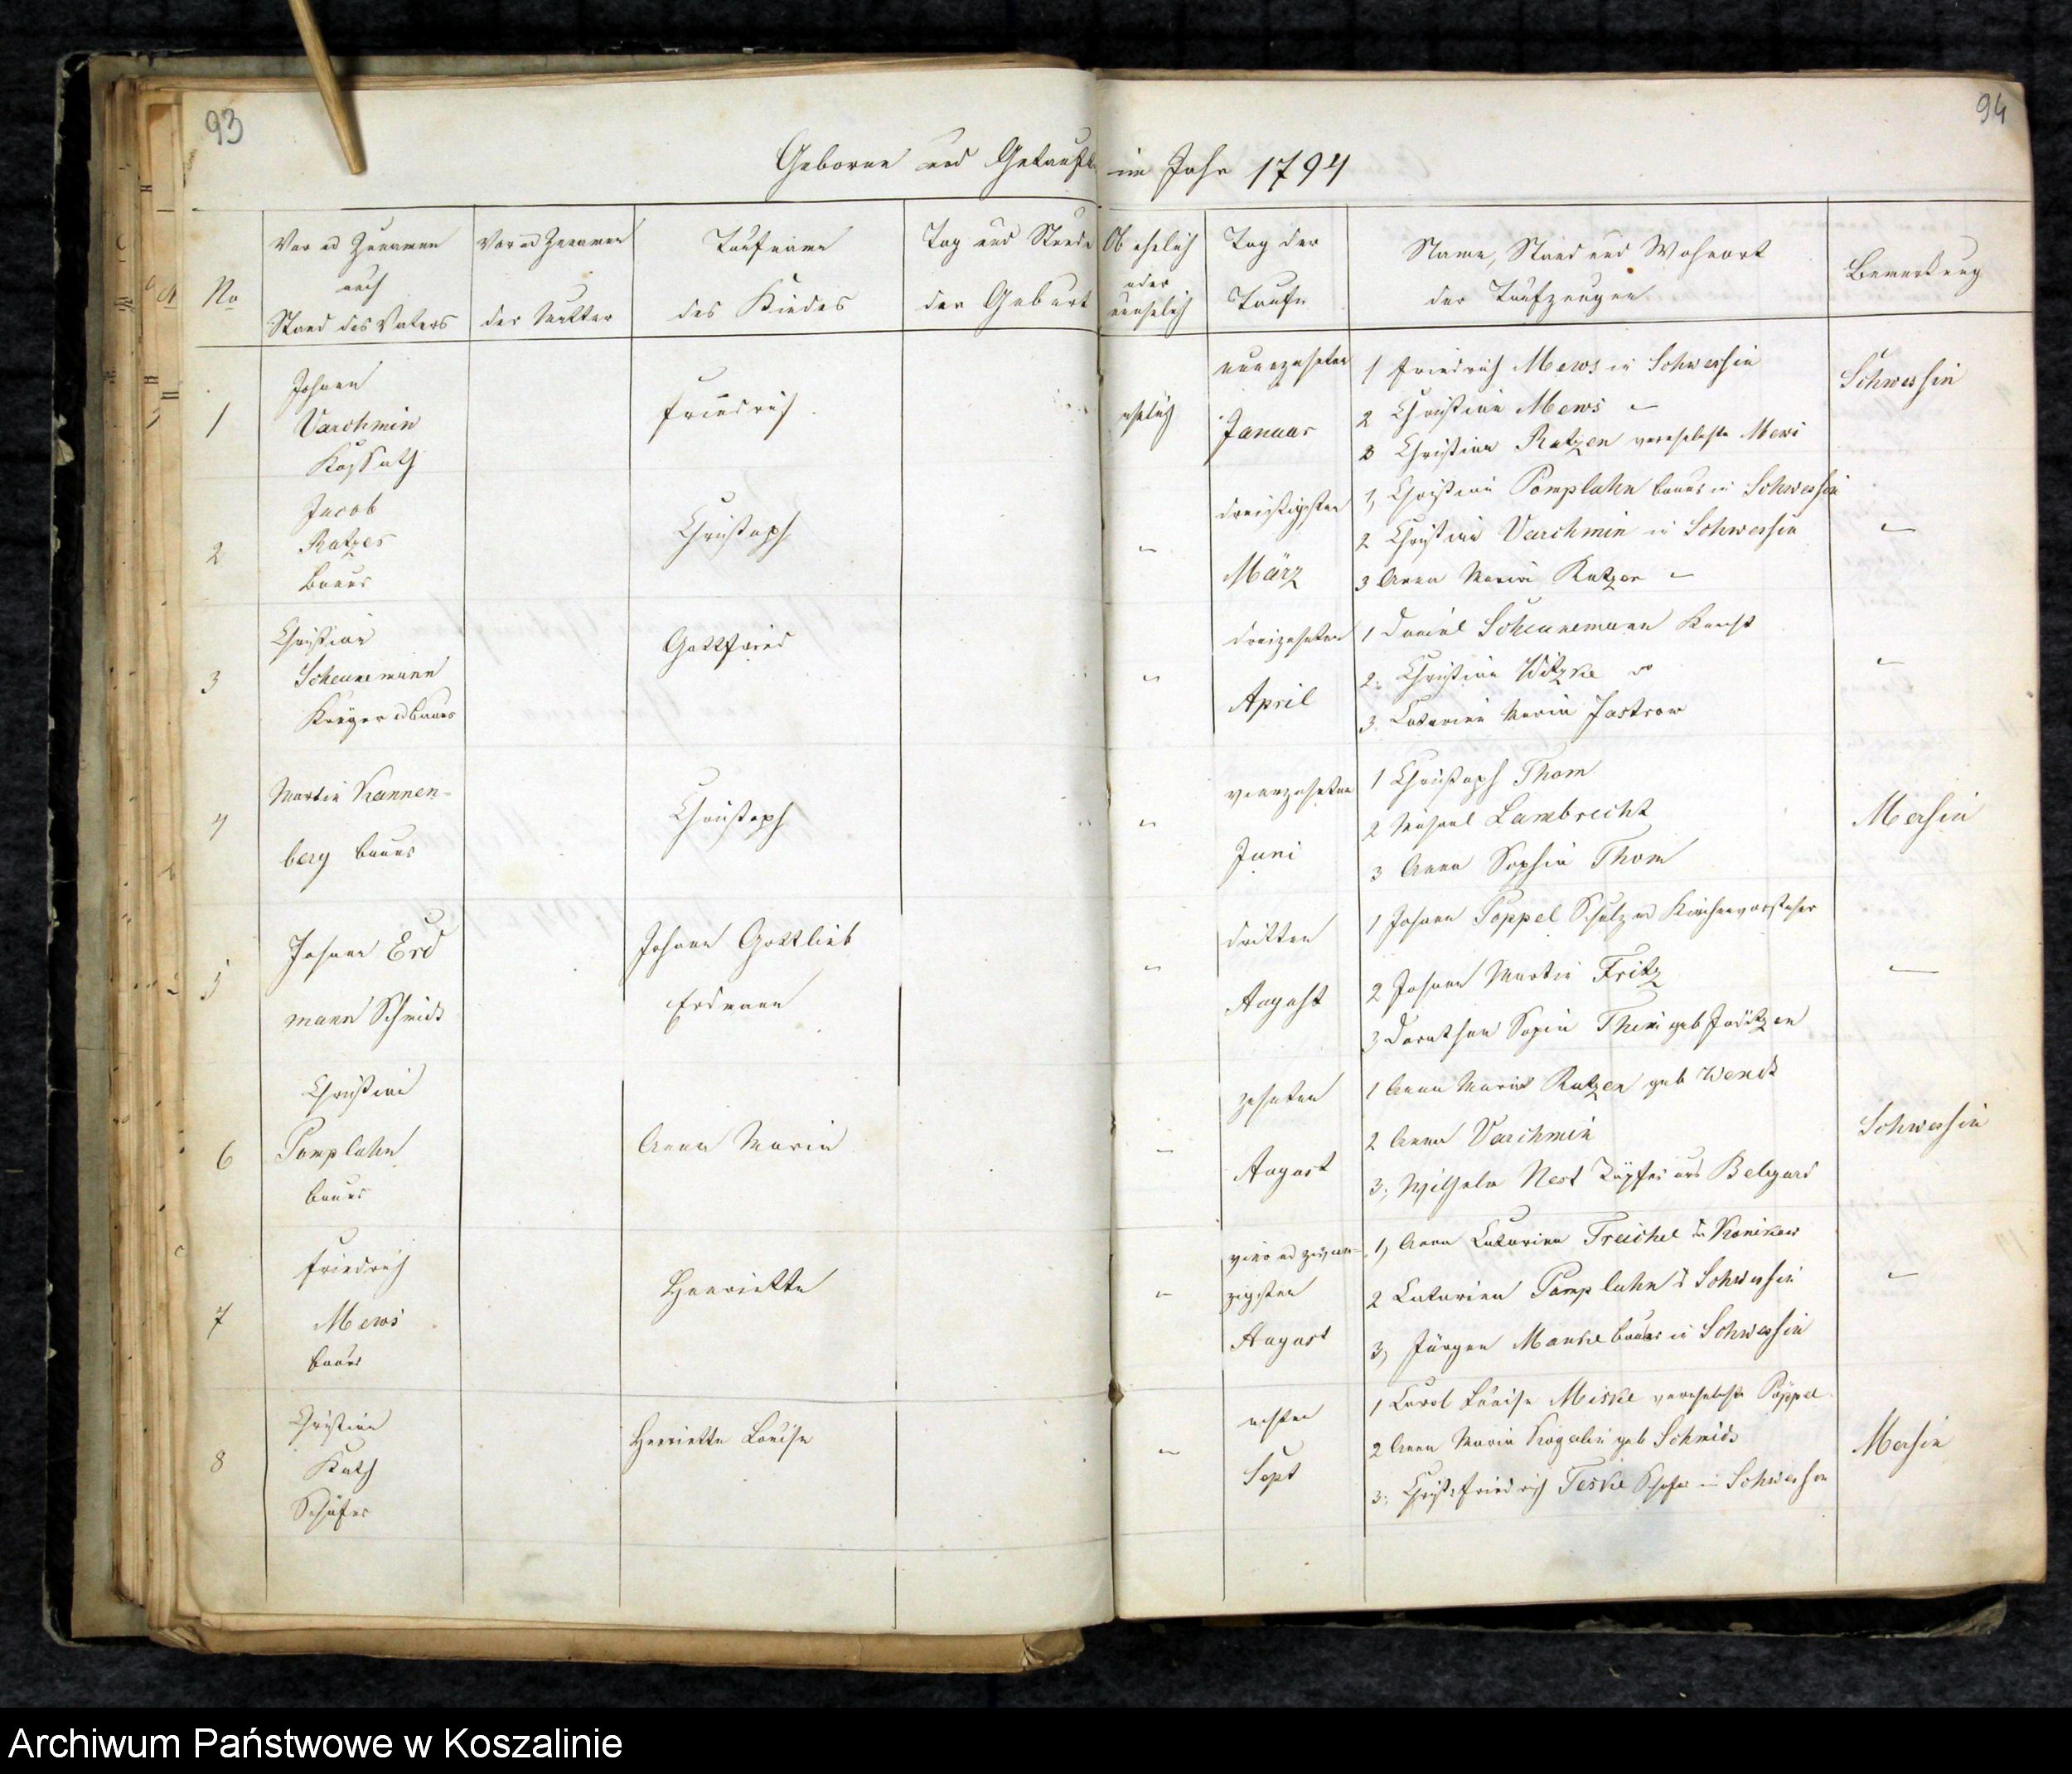 93
94
Geborne und Getaufte im Jahr 1794
No
Vor und Zunamen
auch
Stand des Vaters
Vor und Zunamen
der Mutter
Taufname
des Kindes
Tag und Stunde
der Geburt
Ob ehelich
oder
unehelich
Tag der
Taufe
Name, Stand und Wohnort
der Taufzeugen
Bemerkung
1
Johann
Varchmin
Kossath
Friedrich
ehelich
neunzehnten
Januar
1 Friedrich Mews in Schwessin
2 Christian Mews "
3 Christine Ratzen verehelichte Mews
Schwessin
2
Jacob
Ratzer
Bauer
Christoph
"
dreißigsten
März
1, Christian Pomplahn Bauer in Schwessin
2 Christian Varchmin in Schwessin
3 Anna Maria Ratzen "
"
3
Christian
Scheunemann
Krüger und Bauer
Gottfried
"
dreizehnten
April
1 Daniel Scheunemann
2. Christian Witzke
3. Catarina Maria Jastrow
"
4
Martin Kannen-
berg Bauer
Christoph
"
vierzehnten
Juni
1 Christoph Thom
2 Michael Lambrecht
3 Anna Sophia Thom
Mersin
5
Johann Erd
mann Schmidt
Johann Gottlieb
Erdmann
"
dritten
August
1 Johann Poppel Schulz und Kirchenvorsteher
2 Johann Martin Fritz
3 Dorothea Sophia geb
"
6
Christian
Pomplahn
Bauer
Anna Maria
"
zehnten
August
1 Anna Maria Ratzen geb Wendt
2 Anna Varchmin
3, Wilhelm Nest Töpfer aus Belgard
Schwessin
7
Friedrich
Mews
Bauer
Henriette
"
vier und zwan-
zigsten
August
1, Anna Catarina Treichel in Konikow
2 Catarina Pomplahn in Schwessin
3, Jürgen Manke Bauer in Schwessin
"
8
Christian
Rath
Schäfer
Henriette Louise
"
achten
Sept
1 Carol Louise Miske verehelichte Poppel
2 Anna Maria geb Schmidt
3, Christ: Friedrich Teske Schäfer in Schwessin
Mersin
Archiwum Państwowe w Koszalinie